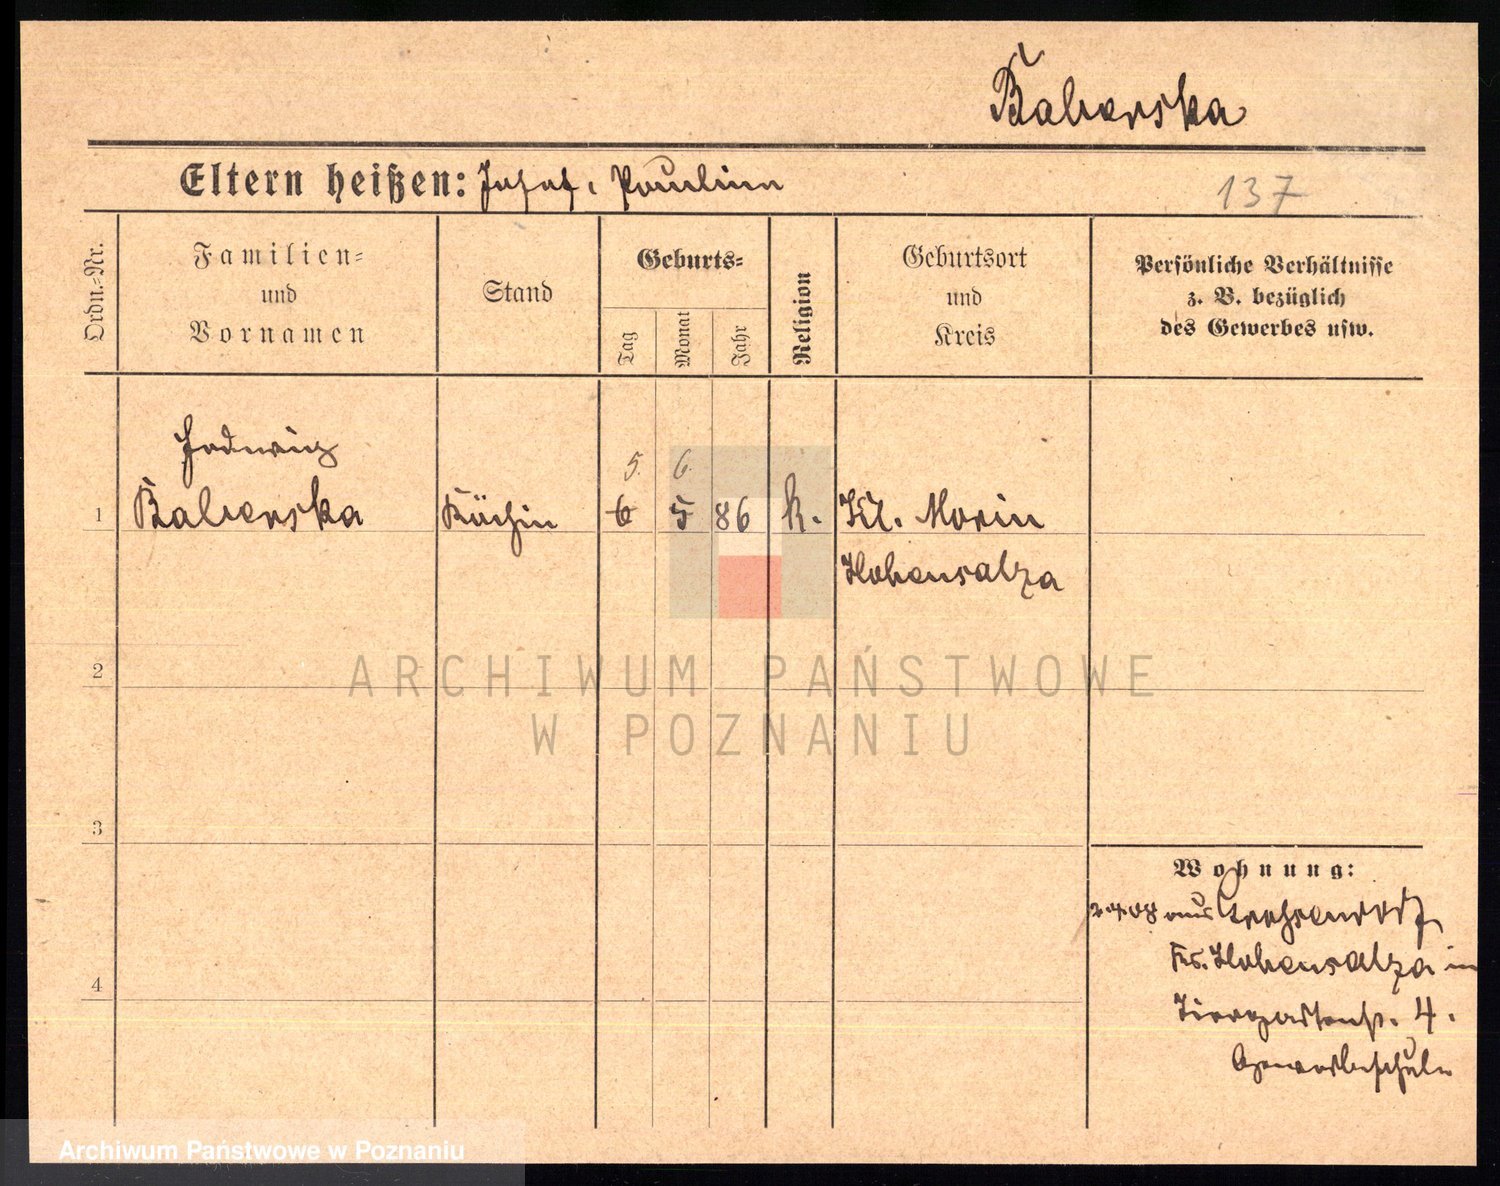 Balverska
Eltern heißen: Josef, Paulina
137
Ordn.-Nr.
Familien-
und
Vornamen
Stand
Geburts-
Tag
Monat
Jahr
Religion
Geburtsort
und
Kreis
Persönliche Verhältnisse
z. B. bezüglich
des Gewerbes usw.
Hedwig
5. 6.
1 Balverska Köchin 6 5 86 k. Kl. Morin
Hohensalza
ARCHIWUM PAŃSTWOWE
W POZNANIU
2
3
4
Wohnung:
2.4.08 aus
Krs. Hohensalza in
Tiergartenstr. 4.
Gewerbeschule
Archiwum Państwowe w Poznaniu